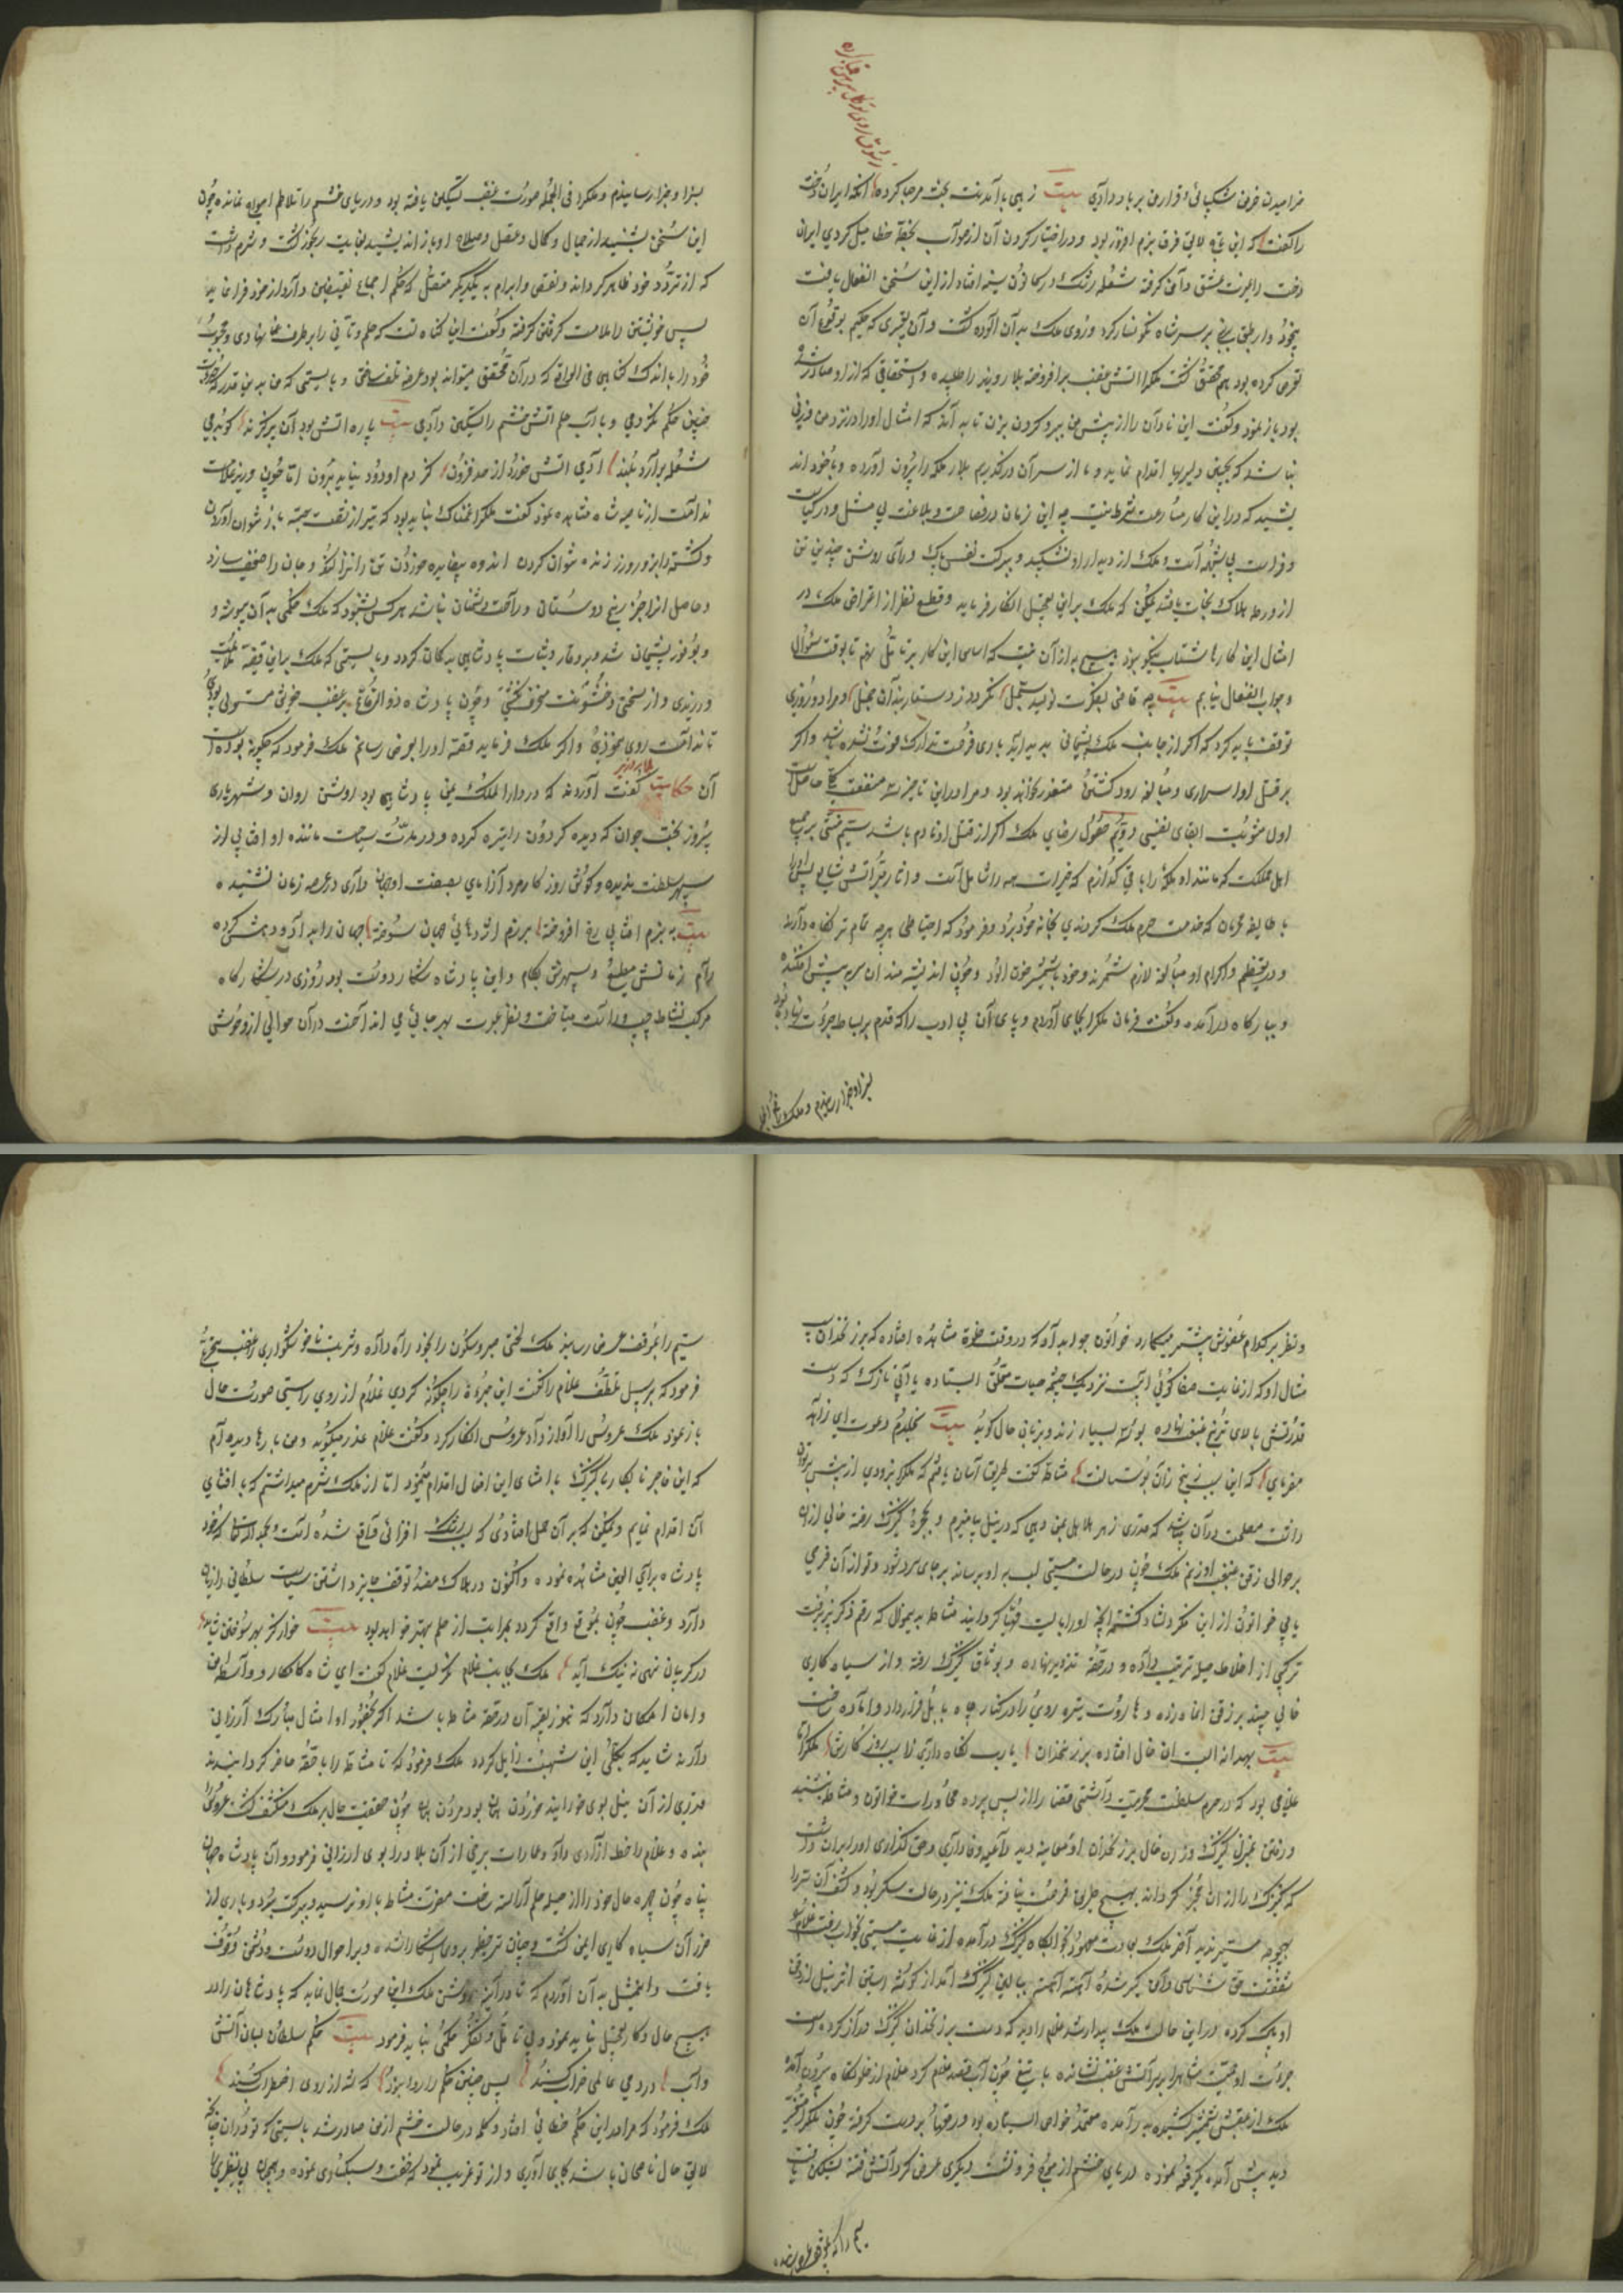 خرامیدن خرمن شکیبائی و قرار من بر باد دادی بیت زهی باآمدنت بخت مرحبا کرده آنکه ایران دخت
را گفت که این تاج لایق فرق بزم افروز بود و در اختیار کردن آن از صواب بخطا میل کردی ایران
دخت را غیرت عشق دامن گرفته شعله رشک در کانون سینه افتاد از این سخن انفعال یافت
بیخود وار طبق برنج بر سر شاه نگونسار کرد و روی ملک به آن آلوده گشت و آن تعبیری که حکیم بوقوع آن
تعرض کرده بود هم محقق گشت ملکرا آتش غضب برافروخته بلار وزیر را طلبیده و استخفافی که از او صادر شده
بود باز نمود و گفت این نادان را از پیش من بیرون و گردن بزن تا بداند که امثال او را در نزد من وزنی
نباشد که بچنین دلیریها اقدام نماید و ما از سر آن درگذریم بلار ملکه را بیرون آورده و با خود اند
یشید که در این کار مسارعت شرط نیست چه این زن در فصاحت و بلاغت بی مثل و در کیاست
و فراست بی شبهه است و ملک از دیدار او نشکیبد و ببرکت نفس پاک و رای روشن چندین تن
از ورطه هلاک نجات یافته ممکن که ملک بر این تعجیل انکار فرماید و قطع نظر از اعراض ملک در
امثال این کارها شتاب نیکو نبود هیچ به از آن نیست که اساس این کار بر تامل نهم تا بوقت سؤال
و جواب انفعال نیابم بیت چه قاضی بفکرت نویسد سجل نگردد ز دستاربندان خجل و مرا دو روزی
توقف باید کرد که اگر از جانب ملک پشیمانی پدید آید باری فرصت تدارک فوت نشده باشد و اگر
بر قتل او اسراری و مبالغه رود کشتن متعذر نخواهد بود و مرا در این تاخیر سه منفعت کلی حاصل است
اول مثوبت ابقای نفسی دویم حصول رضای ملک اگر از قتل او نادم باشد سیم منتی بر جمیع
اهل مملکت که مانند او ملکه را باقی گذارم که خیرات همه را شامل است و آثار مبراتش شایع پس او را
با طایفه محرمان که خدمت حرم ملک کردندی بخانه خود برد و فرمود که احتیاطی هر چه تمام تر نگاه دارند
و در تعظیم و اکرام او مبالغه لازم شمرند و خود با شمشیر خون آلود و چون اندیشه مندان سر پیش افکنده
و ببارگاه درآمده و گفت فرمان ملکرا بجای آوردم و پای آن بی ادب را که قدم بر بساط جرات نهاده بود
بسزا و جزا رسانیدم و ملکرا فی الجمله صورت غضب تسکین یافته بود و دریای خشم را تلاطم امواج نمانده چون
این سخن بشنید از جمال و کمال و عقل و صلاح او باز اندیشید بغایت رنجور گشت و شرم داشت
که از تردد خود ظاهر گرداند و نقض و ابرام به یکدیگر متصل که حکم اجماع نقیضین دارد از خود فرا نماید
پس خویشتن را ملامت کردن گرفته و گفت این گناه تست که حلم و تانی را بر طرف نهادی و محبوب
خود را باندک گناهی فی الواقع که در آن محقق میتواند بود عرضه تلف ساختی و بایستی که من باین قدر کدورت
چنین حکم نکردمی و بآب حلم آتش خشم را تسکین دادمی بیت پاره آتش بود آن پرگزند کو بدمی
شعله برآرد بلند آدمی آتش خورد از حد فزون کز دم او دود نیاید برون اما چون وزیر علامت
ندامت از ناصیه شاه مشاهده نمود گفت ملکرا غمناک نباید بود که تیر از شست جسته باز نتوان آوردن
و کشته را بزور و زر زنده نتوان کردن اندوه بیفایده خوردن تن را نزار کند و جان را ضعیف سازد
و حاصل از او جز رنج دوستان و راحت دشمنان نباشد هر کس بشنود که ملک حکمی به آن پیوسته و
و بفور پشیمان شد و بر وقار و ثبات پادشاهی بدگمان گردد و بایستی که ملک بر این قضیه ملاعبت
ورزیدی و از سختی و خشونت منحرف گشتی و چون پادشاه ذو القاع بر غضب خویش مستولی بودی
تا ندامت روی ننمودی و اگر ملک فرماید قصه او را بعرض رسانم ملک فرمود که چگونه بوده است
آن حکایت گفت آورده اند که در دار الملک یمن پادشاهی بود روشن روان و شهریاری
پیروز بخت جوان که دیده گردون را تیره کرده و در مدت سیاحت مانند او آفتابی از
سپهر سلطنت ندیده و گوش روزگار مرد آزمای بصفت او جهان داری در عرصه زمان نشنیده
بیت به بزم آفتابی رخ افروخته برزم اژدهائی جهان سوخته جهان را به داد و دهش کرده
رام زمانش مطیع و سپهرش بکام و این پادشاه شکار دوست بود روزی در شکارگاه
مرکب نشاط چپ و راست میتاخت و نظر عبرت بهر جائی می انداخت در آن حوالی از وحوش
بسزا و جزا رسانیدم و ملکرا فی الجمله
و نظر بر کدام عضوش بیشتر میگمارد خواتون جواب داد که در وقت خلوة مشاهده افتاده که بر زنخدان سیب
مثال او که از غایت صفا گوئی آبیست نزدیک چشمه حیات معلق ایستاده یا آبی نازک که دست
قدرتش بالای ترنج غبغب نهاده بوسه بسیار زند و بزبان حال گوید بیت بخلدم دعوت ای زاهد
مفرمای که این سیب زنخ زان بوستانست مشاطه گفت طریق آسان یافتم که ملکرا بزودی از پیش برتوان
داشت مصلحت در آن باشد که قدری زهر هلاهل بمن دهی که در نیل بیامیزم و بحجره کنیزک رفته خالی از آن
بر حوالی ذقن غبغب او زنم ملک چون در حالت مستی لب بر او برساند بر جای سرد شود و تو از آن غرمی
یابی خواتون از این فکر دلشاد گشته آنچه او را بایست مهیا گردانید مشاطه بدین منوال که رقم ذکر پذیرفت
ترکیبی از اخلاط حیله ترتیب داده و در حقه تزویر نهاده و بوثاق کنیزک رفته و از سیاه کاری
خالی چند بر ذقن او زده و هاروت تیره روی را در کنار چاه بابل قرار داد و آماده ساخت
بیت بهر دانه است ان خال افتاده بر زنخدان یارب نگاه داری زاسیب روزگارش ملکرا
غلامی بود که در حرم سلطنت محرمیت داشتی قضا را از پس پرده محاورات خواتون و مشاطه بشنید
و رفتن بمنزل کنیزک و زدن خال بر زنخدان او بمعاینه دید داعیه وفاداری و حق گذاری او را بران داشت
که کنیزک را از ان مخبر گرداند بهیچ طریق فرصت نیافته ملک نیز در حالت سکر بود و کشف آن سر را
بهیچوجه میسر ندید آخر ملک بعادت معهود بخوابگاه کنیزک درآمده از غایت مستی بخواب رفت غلام را
شفقت حق شناسی دامن گیر شده آهسته آهسته ببالین کنیزک آمد از گوشه آستین اثر نیل از ذقن
او پاک کرده در این حال ملک بیدار شد غلام را دید که دست بر زنخدان کنیزک دراز کرده دست
جرات او حمیت شاهرا بر سر آتش غضب نشانده با تیغ چون آب قصد غلام کرد غلام از خلوتگاه بیرون آمد
ملک از عقبش شمشیر کشیده بدر آمد معتمد خواص ایستاده بود و رقعها بر دست گرفته چون ملکرا متغیر
دید پیش آمد یک رقعه نمود دریای خشم از موج فرو نشست دیگری عرض کرد آتش فتنه تسکین یافت
سیم را که بموقف عرض رسانید
سیم را بموقف عرض رسانید ملک لختی صبر و سکون را بخود راه داده و شربت ناخوشگواری غضب تجرع
فرمود که بر سبیل تلطف غلام را گفت این جرات را چگونه کردی غلام از روی راستی صورت حال
باز نمود ملک عروس را آواز داد عروس انکار کرد و گفت غلام عذر میگوید و من بارها دیده ام
که این فاجر نابکار با کنیزک بامثال این افعال اقدام مینمود اما از ملک شرم میداشتم که بافشای
آن اقدام نمایم و ممکن که بر آن حمل افتادی که بسبب رشک افرائی واقع شده است و بحمد الله تعالی که خود
پادشاه برای العین مشاهده نمود و اکنون در هلاک مفسد توقف جایز داشتن سیاست سلطانی را زیان
دارد و غضب چون بموقع واقع گردد بمراتب از حلم بهتر خواهد بود بیت خوار کز بهر سوختن شاید
در گریبان نهی نه نیک آید ملک بجانب غلام نگریست غلام گفت ای شاه کامکار و واسطه امن
و امان امکان دارد که هنوز بقیه آن در حقه مشاطه باشد اگر بحضور او امثال مبارک ارزانی
دارند شاید که بکلی این شبهت زایل گردد ملک فرمود که تا مشاطه را با حقه حاضر گردانیدند
قدری از آن نیل بوی خورانیدند خوردن همان بود مردن همان چون حقیقت حال بر ملک منکشف گشت عروس را
بند و غلام را خط آزادی داد و امارات برخی از آن بلاد را بوی ارزانی فرمود و آن پادشاه جهان
پناه چون چهره حال خود را از حلیه حلم آراسته ساخت مضرت مشاطه باو نرسید و ببرکت صبر و بردباری از
ضرر آن سیاه کاری ایمن گشت
یافت و این مثل به آن آوردم که تا در آینه روشن ملک این صورت جمال نماید که پادشاهان را در
هیچ حال و کار تعجیل نباید نمود و بی تامل و تفکر حکمی نباید فرمود بیت حکم سلطان بسان آتش
و آب دردمی عالمی خراب کنند پس چنین حکم را روا نبود که شه از روی اضطراب کند
ملک فرمود که مرا در این حکم خطائی افتاد و کلمه در حالت خشم از من صادر شد بایستی که تو در آن چنانکه
لایق حال ناصحان باشد بجای آوری و از تو غریب نمود که خفت و سبکساری نموده و چنان بی نظیری را